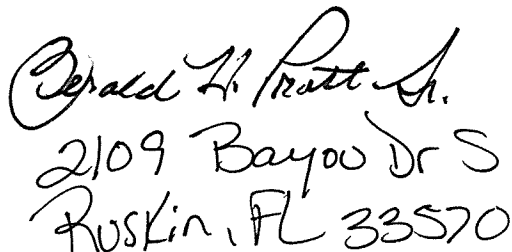 Gerald H. Pratt Sr.
2109 Bayou Dr S
Ruskin, FL 33570